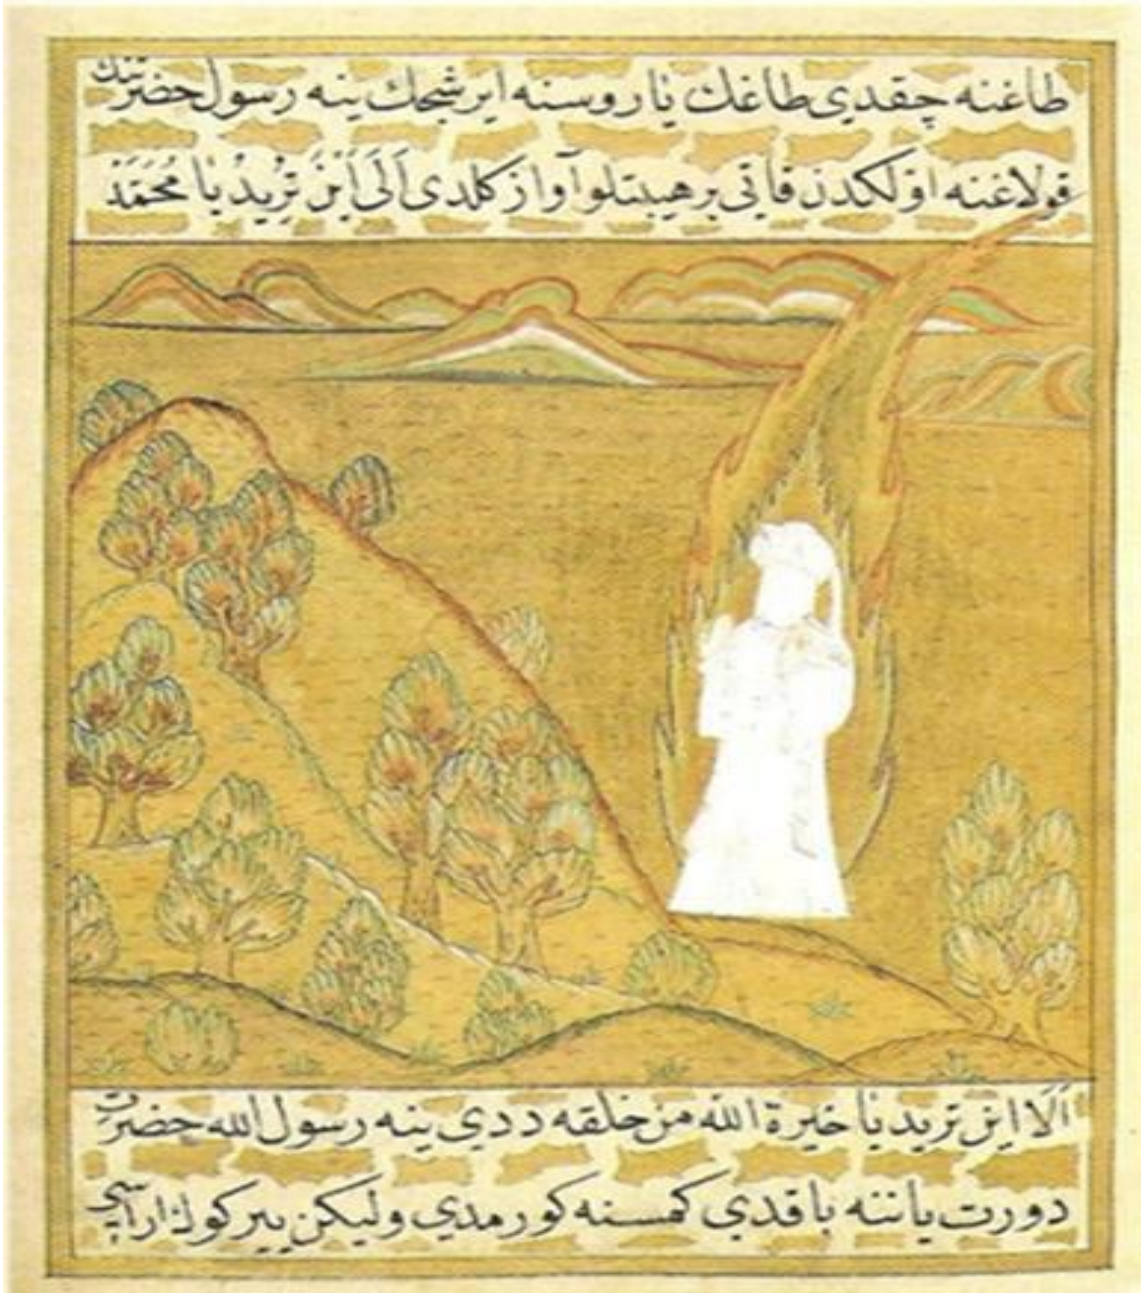 طاغنه چقدي طاغك ياروسنه ايرشجك ينه رسول حضرتنك
قولاغنه اوّلكدن قاتي برهيبتلو آواز كلدى اَلَى اَيْنَ تُرِيدُ يَا مُحَمَّدْ
اَلَا اين تريد يا خيرة الله من خلقه ددي ينه رسول الله حضرت
دورت ياننه باقدي كمسنه كورمدي وليكن ييركوك اراسي